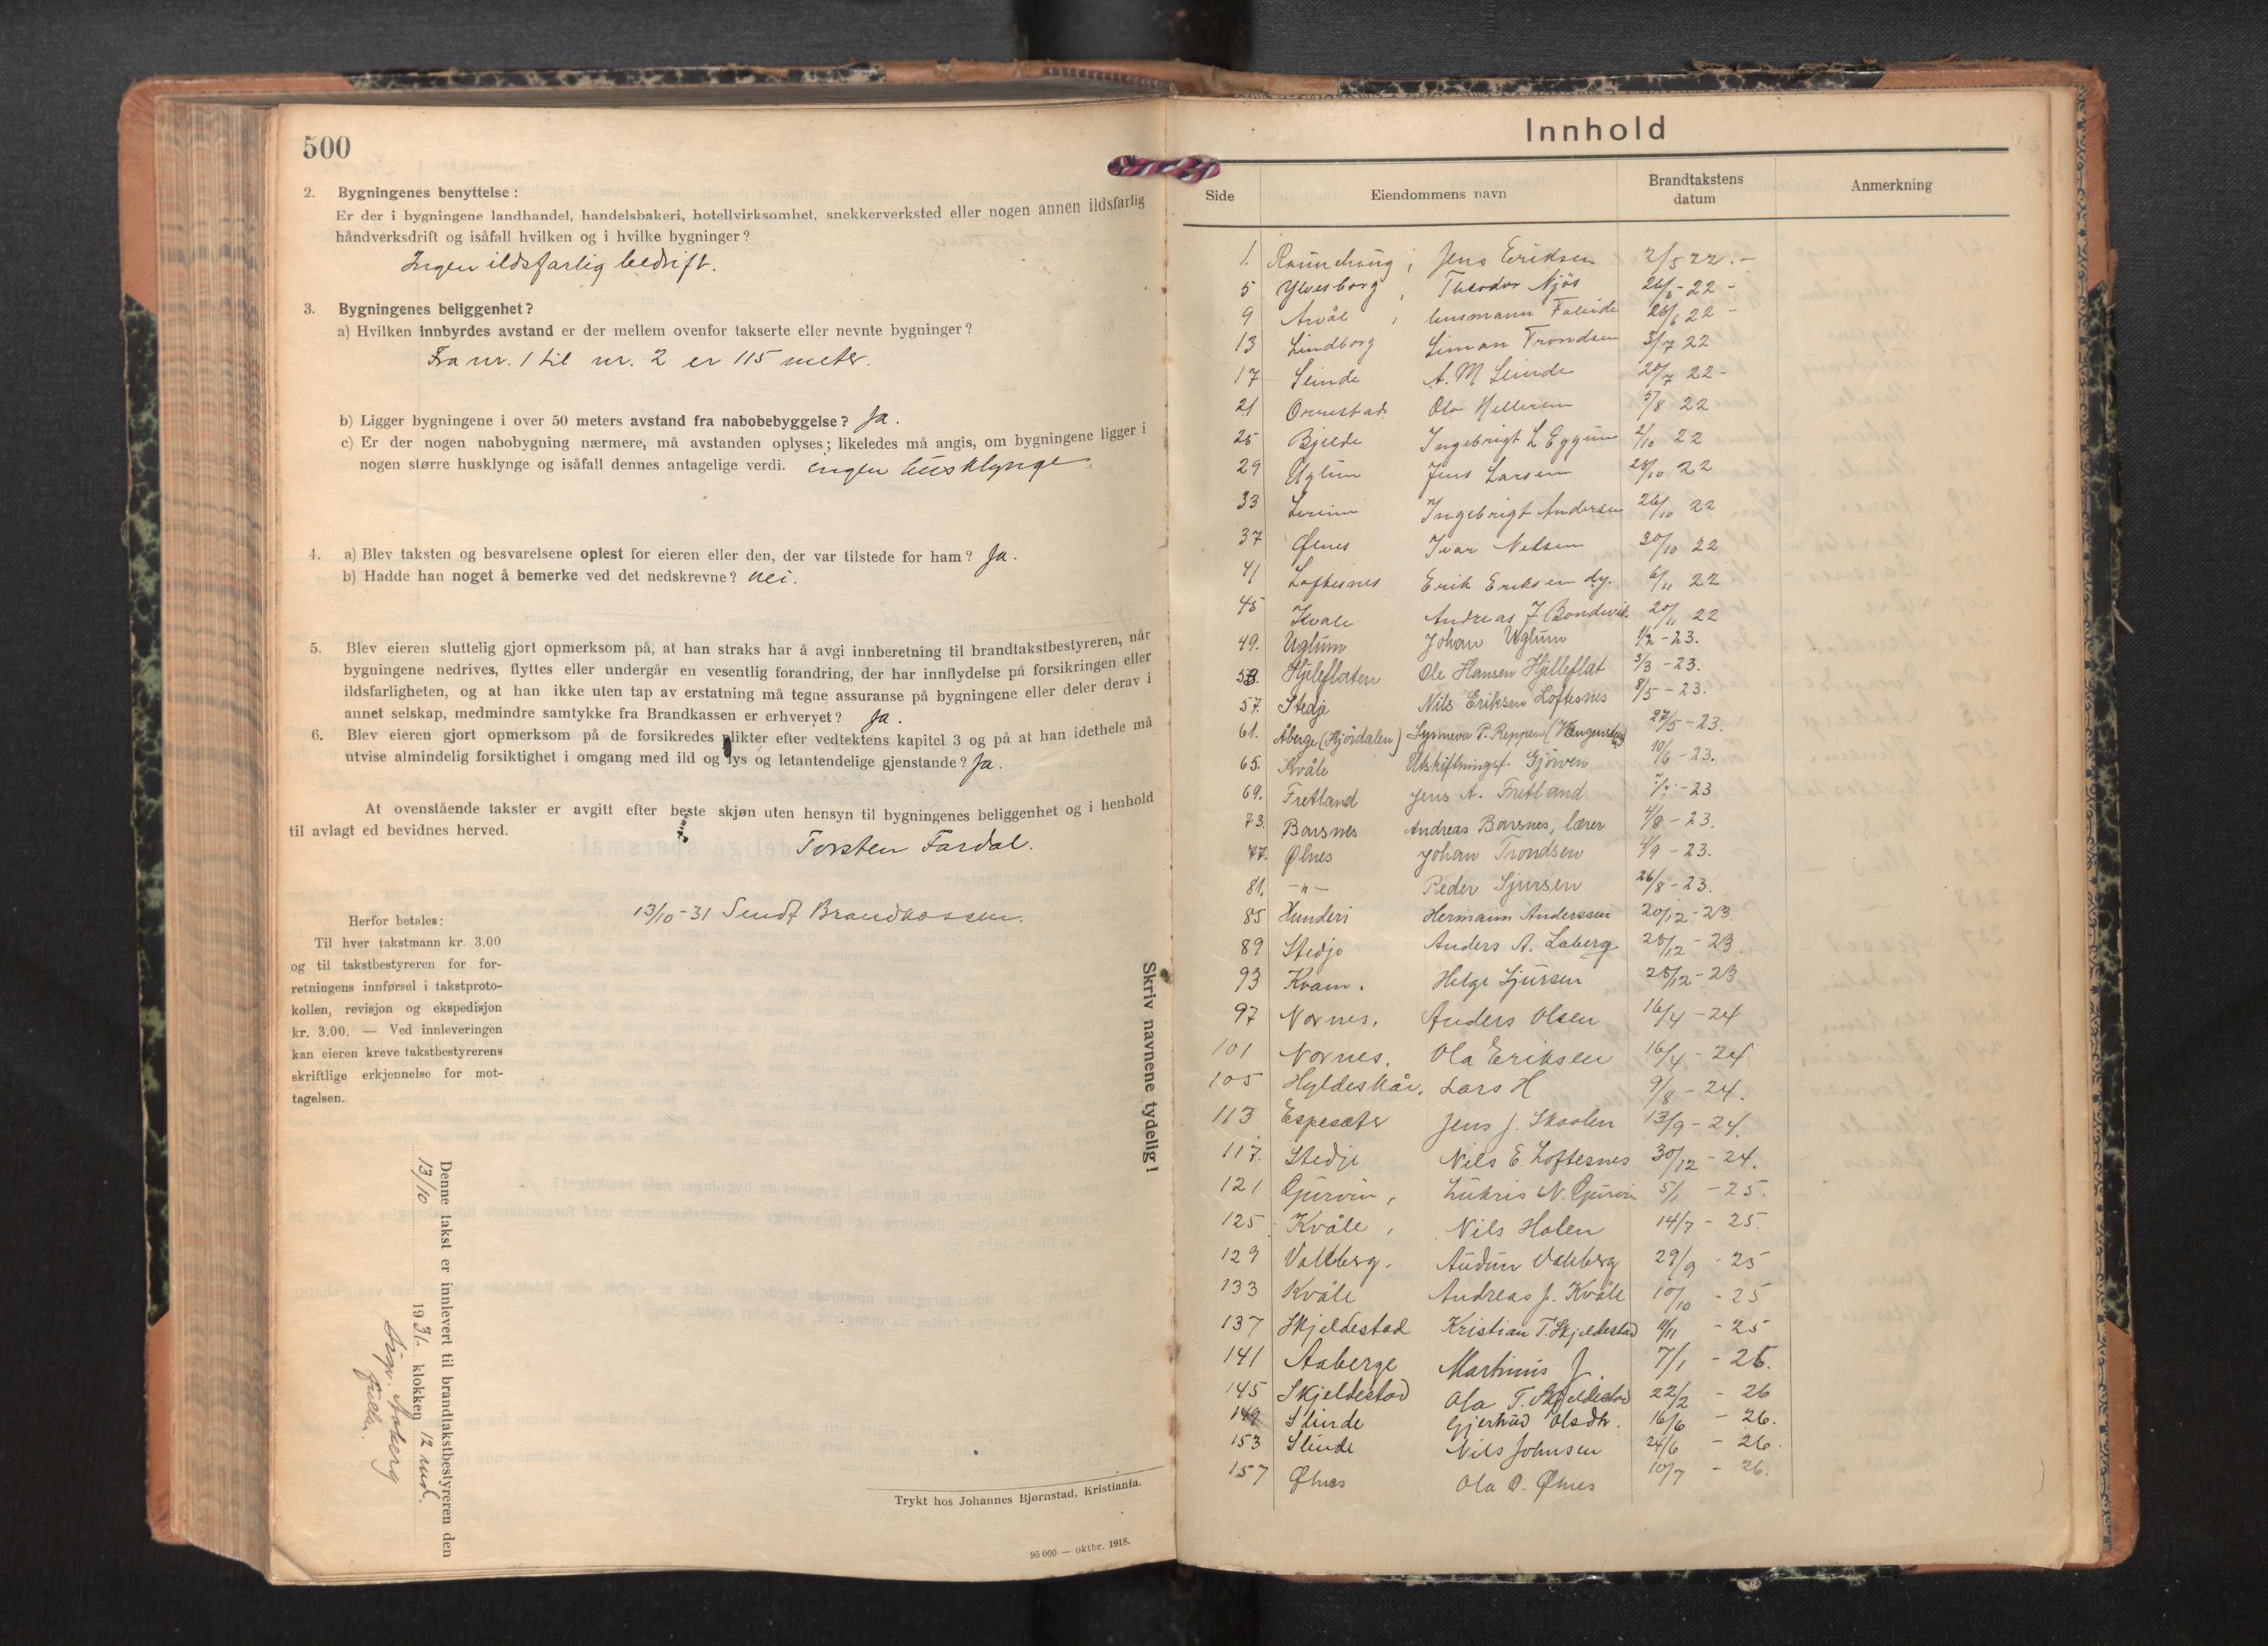 500
2. Bygningenes benyttelse:
Er der i bygningene landhandel, handelsbakeri, hotellvirksomhet, snekkerverksted eller nogen annen ildsfarlig
håndverksdrift og isåfall hvilken og i hvilke bygninger?
Ingen ildsfarlig bedrift.
3. Bygningenes beliggenhet?
a) Hvilken innbyrdes avstand er der mellem ovenfor takserte eller nevnte bygninger?
Fra nr. 1 til nr. 2 er 115 meter.
b) Ligger bygningene i over 50 meters avstand fra nabobebyggelse? Ja.
c) Er der nogen nabobygning nærmere, må avstanden oplyses; likeledes må angis, om bygningene ligger i
nogen større husklynge og isåfall dennes antagelige verdi. ingen husklynge.
4. a) Blev taksten og besvarelsene oplest for eieren eller den, der var tilstede for ham? Ja.
b) Hadde han noget å bemerke ved det nedskrevne? nei.
5. Blev eieren sluttelig gjort opmerksom på, at han straks har å avgi innberetning til brandtakstbestyreren, når
bygningene nedrives, flyttes eller undergår en vesentlig forandring, der har innflydelse på forsikringen eller
ildsfarligheten, og at han ikke uten tap av erstatning må tegne assuranse på bygningene eller deler derav i
annet selskap, medmindre samtykke fra Brandkassen er erhvervet? Ja.
6. Blev eieren gjort opmerksom på de forsikredes plikter efter vedtektens kapitel 3 og på at han idethele må
utvise almindelig forsiktighet i omgang med ild og lys og letantendelige gjenstande? Ja.
At ovenstående takster er avgitt efter beste skjøn uten hensyn til bygningenes beliggenhet og i henhold
til avlagt ed bevidnes herved.
Torsten Fardal.
13/10-31 Sendt Brandkassen.
Herfor betales:
Til hver takstmann kr. 3.00
og til takstbestyreren for for-
retningens innførsel i takstproto-
kollen, revisjon og ekspedisjon
kr. 3.00. — Ved innleveringen
kan eieren kreve takstbestyrerens
skriftlige erkjennelse for mot-
tagelsen.
Denne takst er innlevert til brandtakstbestyreren den
13/10 1931. klokken 12 md.
Sign. Aaberg
Skriv navnene tydelig!
Trykt hos Johannes Bjørnstad, Kristiania.
95 000 — oktbr. 1918.
Innhold
Side Eiendommens navn Brandtakstens datum Anmerkning
1. Jens Eriksen 2/5 22.-
5 Ylvesborg, Theodor Njøs 26/6-22-
9 Arvål, Faleide 26/6 22-
13 Lindborg Simon Trondsen 3/7 22
17 Slinde A. M Slinde 20/7 22-
21 Ormestad Ola Hellerem 5/8 22
25 Bjelde Ingebrigt L Eggum 2/10 22
29 Uglum Jens Larsen 28/10 22
33 Lerum Ingebrigt Andersen 26/10 22
37 Ølnes Ivar Nilsen 30/10 22
41 Loftesnes Erik Eriksen dy. 6/11 22
45 Kvale Andreas J Bondevik. 20/11 22
49. Uglum Johan Uglum 1/2-23.
53. Hjelleflaten Ole Hansen Hjelleflat 3/3-23.
57. Stedje Nils Eriksen Loftesnes 8/5-23.
61. Åberge (Hjørdalen) Synneva P. Reppen 27/5-23.
65. Kvåle Utskiftningsf. Gjørven 10/6-23.
69. Fretland Jens A. Fretland -23
73. Barsnes Andreas Barsnes, lærer 4/8-23.
77. Ølnes Johan Trondsen 4/9-23.
81. -"- Peder Sjursen 26/8-23.
85 Hunderi Hermann Anderssen 20/12-23.
89 Stedje Anders A. Laberg 28/12-23.
93 Kvam. Helge Sjursen 28/12-23
97 Nornes. Anders Olsen 16/4-24
101 Nornes. Ola Eriksen 16/4-24
105 Hyldeskår. Lars H 9/8-24.
113 Espesæter Jens J. Skaalen 13/9-24.
117. Stedje Nils E. Loftesnes 30/12-24.
121 Gjurvin, N. Gjurvin 5/1-25.
125 Kvåle, Nils Holen 14/7-25.
129 Valkberg. Audun Valkberg 29/9-25
133 Kvåle Andreas J. Kvåle 10/10-25
137 Skjeldestad Kristian T. Skjeldestad 11/11-25
141 Aaberge Martinus J. 7/1-26.
145 Skjeldestad Ola T. Skjeldestad 22/2-26
149 Slinde Gjertrud Olsdtr. 16/6-26.
153 Slinde Nils Johnsen 24/6-26.
157 Ølnes Ola O. Ølnes 10/7-26.